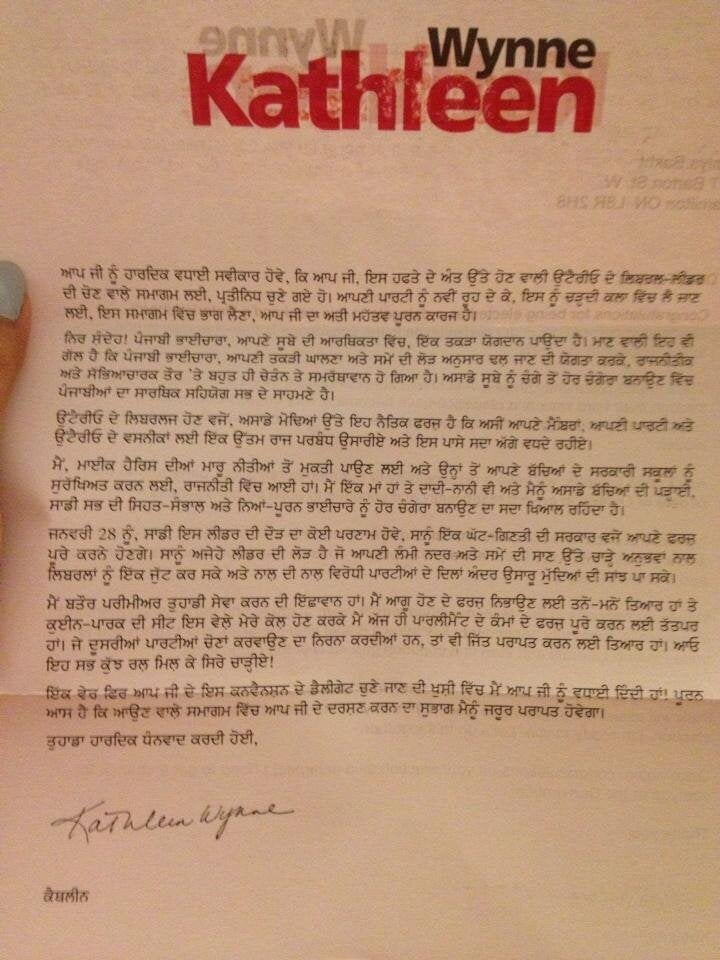 Wynne
Kathleen
ਆਪ ਜੀ ਨੂੰ ਹਾਰਦਿਕ ਵਧਾਈ ਸਵੀਕਾਰ ਹੋਵੇ, ਕਿ ਆਪ ਜੀ, ਇਸ ਹਫਤੇ ਦੇ ਅੰਤ ਉੱਤੇ ਹੋਣ ਵਾਲੀ ਉਂਟੈਰੀਓ ਦੇ ਲਿਬਰਲ-ਲੀਡਰ
ਦੀ ਚੋਣ ਵਾਲੇ ਸਮਾਗਮ ਲਈ, ਪ੍ਰਤੀਨਿਧ ਚੁਣੇ ਗਏ ਹੋ। ਆਪਣੀ ਪਾਰਟੀ ਨੂੰ ਨਵੀਂ ਰੂਹ ਦੇ ਕੇ, ਇਸ ਨੂੰ ਚੜ੍ਹਦੀ ਕਲਾ ਵਿੱਚ ਲੈ ਜਾਣ
ਲਈ, ਇਸ ਸਮਾਗਮ ਵਿੱਚ ਭਾਗ ਲੈਣਾ, ਆਪ ਜੀ ਦਾ ਅਤੀ ਮਹੱਤਵ ਪੂਰਨ ਕਾਰਜ ਹੈ।
ਨਿਰ ਸੰਦੇਹ! ਪੰਜਾਬੀ ਭਾਈਚਾਰਾ, ਆਪਣੇ ਸੂਬੇ ਦੀ ਆਰਥਿਕਤਾ ਵਿੱਚ, ਇੱਕ ਤਕੜਾ ਯੋਗਦਾਨ ਪਾਉਂਦਾ ਹੈ। ਮਾਣ ਵਾਲੀ ਇਹ ਵੀ
ਗੱਲ ਹੈ ਕਿ ਪੰਜਾਬੀ ਭਾਈਚਾਰਾ, ਆਪਣੀ ਤਕੜੀ ਘਾਲਣਾ ਅਤੇ ਸਮੇਂ ਦੀ ਲੋੜ ਅਨੁਸਾਰ ਢਲ ਜਾਣ ਦੀ ਯੋਗਤਾ ਕਰਕੇ, ਰਾਜਨੀਤੀਕ
ਅਤੇ ਸੱਭਿਆਚਾਰਕ ਤੌਰ 'ਤੇ ਬਹੁਤ ਹੀ ਚੇਤੰਨ ਤੇ ਸਮਰੱਥਾਵਾਨ ਹੋ ਗਿਆ ਹੈ। ਅਸਾਡੇ ਸੂਬੇ ਨੂੰ ਚੰਗੇ ਤੋਂ ਹੋਰ ਚੰਗੇਰਾ ਬਨਾਉਣ ਵਿੱਚ
ਪੰਜਾਬੀਆਂ ਦਾ ਸਾਰਥਿਕ ਸਹਿਯੋਗ ਸਭ ਦੇ ਸਾਹਮਣੇ ਹੈ।
ਉਂਟੈਰੀਓ ਦੇ ਲਿਬਰਲਜ ਹੋਣ ਵਜੋਂ, ਅਸਾਡੇ ਮੋਢਿਆਂ ਉੱਤੇ ਇਹ ਨੈਤਿਕ ਫਰਜ਼ ਹੈ ਕਿ ਅਸੀਂ ਆਪਣੇ ਮੈਂਬਰਾਂ, ਆਪਣੀ ਪਾਰਟੀ ਅਤੇ
ਉਂਟੈਰੀਓ ਦੇ ਵਸਨੀਕਾਂ ਲਈ ਇੱਕ ਉੱਤਮ ਰਾਜ ਪਰਬੰਧ ਉਸਾਰੀਏ ਅਤੇ ਇਸ ਪਾਸੇ ਸਦਾ ਅੱਗੇ ਵਧਦੇ ਰਹੀਏ।
ਮੈਂ, ਮਾਈਕ ਹੈਰਿਸ ਦੀਆਂ ਮਾਰੂ ਨੀਤੀਆਂ ਤੋਂ ਮੁਕਤੀ ਪਾਉਣ ਲਈ ਅਤੇ ਉਨ੍ਹਾਂ ਤੋਂ ਆਪਣੇ ਬੱਚਿਆਂ ਦੇ ਸਰਕਾਰੀ ਸਕੂਲਾਂ ਨੂੰ
ਸੁਰੱਖਿਅਤ ਕਰਨ ਲਈ, ਰਾਜਨੀਤੀ ਵਿੱਚ ਆਈ ਹਾਂ। ਮੈਂ ਇੱਕ ਮਾਂ ਹਾਂ ਤੇ ਦਾਦੀ-ਨਾਨੀ ਵੀ ਅਤੇ ਮੈਨੂੰ ਅਸਾਡੇ ਬੱਚਿਆਂ ਦੀ ਪੜ੍ਹਾਈ,
ਸਾਡੀ ਸਭ ਦੀ ਸਿਹਤ-ਸੰਭਾਲ ਅਤੇ ਨਿਆਂ-ਪੂਰਨ ਭਾਈਚਾਰੇ ਨੂੰ ਹੋਰ ਚੰਗੇਰਾ ਬਣਾਉਣ ਦਾ ਸਦਾ ਖਿਆਲ ਰਹਿੰਦਾ ਹੈ।
ਜਨਵਰੀ 28 ਨੂੰ, ਸਾਡੀ ਇਸ ਲੀਡਰ ਦੀ ਦੌੜ ਦਾ ਕੋਈ ਪਰਣਾਮ ਹੋਵੇ, ਸਾਨੂੰ ਇੱਕ ਘੱਟ-ਗਿਣਤੀ ਦੀ ਸਰਕਾਰ ਵਜੋਂ ਆਪਣੇ ਫਰਜ਼
ਪੂਰੇ ਕਰਨੇ ਹੋਣਗੇ। ਸਾਨੂੰ ਅਜੇਹੇ ਲੀਡਰ ਦੀ ਲੋੜ ਹੈ ਜੋ ਆਪਣੀ ਲੰਮੀ ਨਦਰ ਅਤੇ ਸਮੇਂ ਦੀ ਸਾਣ ਉੱਤੇ ਚਾੜ੍ਹੇ ਅਨੁਭਵਾਂ ਨਾਲ
ਲਿਬਰਲਾਂ ਨੂੰ ਇੱਕ ਜੁੱਟ ਕਰ ਸਕੇ ਅਤੇ ਨਾਲ ਦੀ ਨਾਲ ਵਿਰੋਧੀ ਪਾਰਟੀਆਂ ਦੇ ਦਿਲਾਂ ਅੰਦਰ ਉਸਾਰੂ ਮੁੱਦਿਆਂ ਦੀ ਸਾਂਝ ਪਾ ਸਕੇ।
ਮੈਂ ਬਤੌਰ ਪਰੀਮੀਅਰ ਤੁਹਾਡੀ ਸੇਵਾ ਕਰਨ ਦੀ ਇੱਛਾਵਾਨ ਹਾਂ। ਮੈਂ ਆਗੂ ਹੋਣ ਦੇ ਫਰਜ਼ ਨਿਭਾਉਣ ਲਈ ਤਨੋਂ-ਮਨੋਂ ਤਿਆਰ ਹਾਂ ਤੇ
ਕੁਈਨ-ਪਾਰਕ ਦੀ ਸੀਟ ਇਸ ਵੇਲੇ ਮੇਰੇ ਕੋਲ ਹੋਣ ਕਰਕੇ ਮੈਂ ਅੱਜ ਹੀ ਪਾਰਲੀਮੈਂਟ ਦੇ ਕੰਮਾਂ ਦੇ ਫਰਜ਼ ਪੂਰੇ ਕਰਨ ਲਈ ਤੱਤਪਰ
ਹਾਂ। ਜੇ ਦੂਸਰੀਆਂ ਪਾਰਟੀਆਂ ਚੋਣਾਂ ਕਰਵਾਉਣ ਦਾ ਨਿਰਨਾ ਕਰਦੀਆਂ ਹਨ, ਤਾਂ ਵੀ ਜਿੱਤ ਪਰਾਪਤ ਕਰਨ ਲਈ ਤਿਆਰ ਹਾਂ। ਆਓ
ਇਹ ਸਭ ਕੁੱਝ ਰਲ ਮਿਲ ਕੇ ਸਿਰੇ ਚਾੜ੍ਹੀਏ!
ਇੱਕ ਵੇਰ ਫਿਰ ਆਪ ਜੀ ਦੇ ਇਸ ਕਨਵੈਨਸ਼ਨ ਦੇ ਡੈਲੀਗੇਟ ਚੁਣੇ ਜਾਣ ਦੀ ਖੁਸ਼ੀ ਵਿੱਚ ਮੈਂ ਆਪ ਜੀ ਨੂੰ ਵਧਾਈ ਦਿੰਦੀ ਹਾਂ! ਪੂਰਨ
ਆਸ ਹੈ ਕਿ ਆਉਣ ਵਾਲੇ ਸਮਾਗਮ ਵਿੱਚ ਆਪ ਜੀ ਦੇ ਦਰਸ਼ਣ ਕਰਨ ਦਾ ਸੁਭਾਗ ਮੈਨੂੰ ਜਰੂਰ ਪਰਾਪਤ ਹੋਵੇਗਾ।
ਤੁਹਾਡਾ ਹਾਰਦਿਕ ਧੰਨਵਾਦ ਕਰਦੀ ਹੋਈ,
Kathleen Wynne
ਕੈਥਲੀਨ